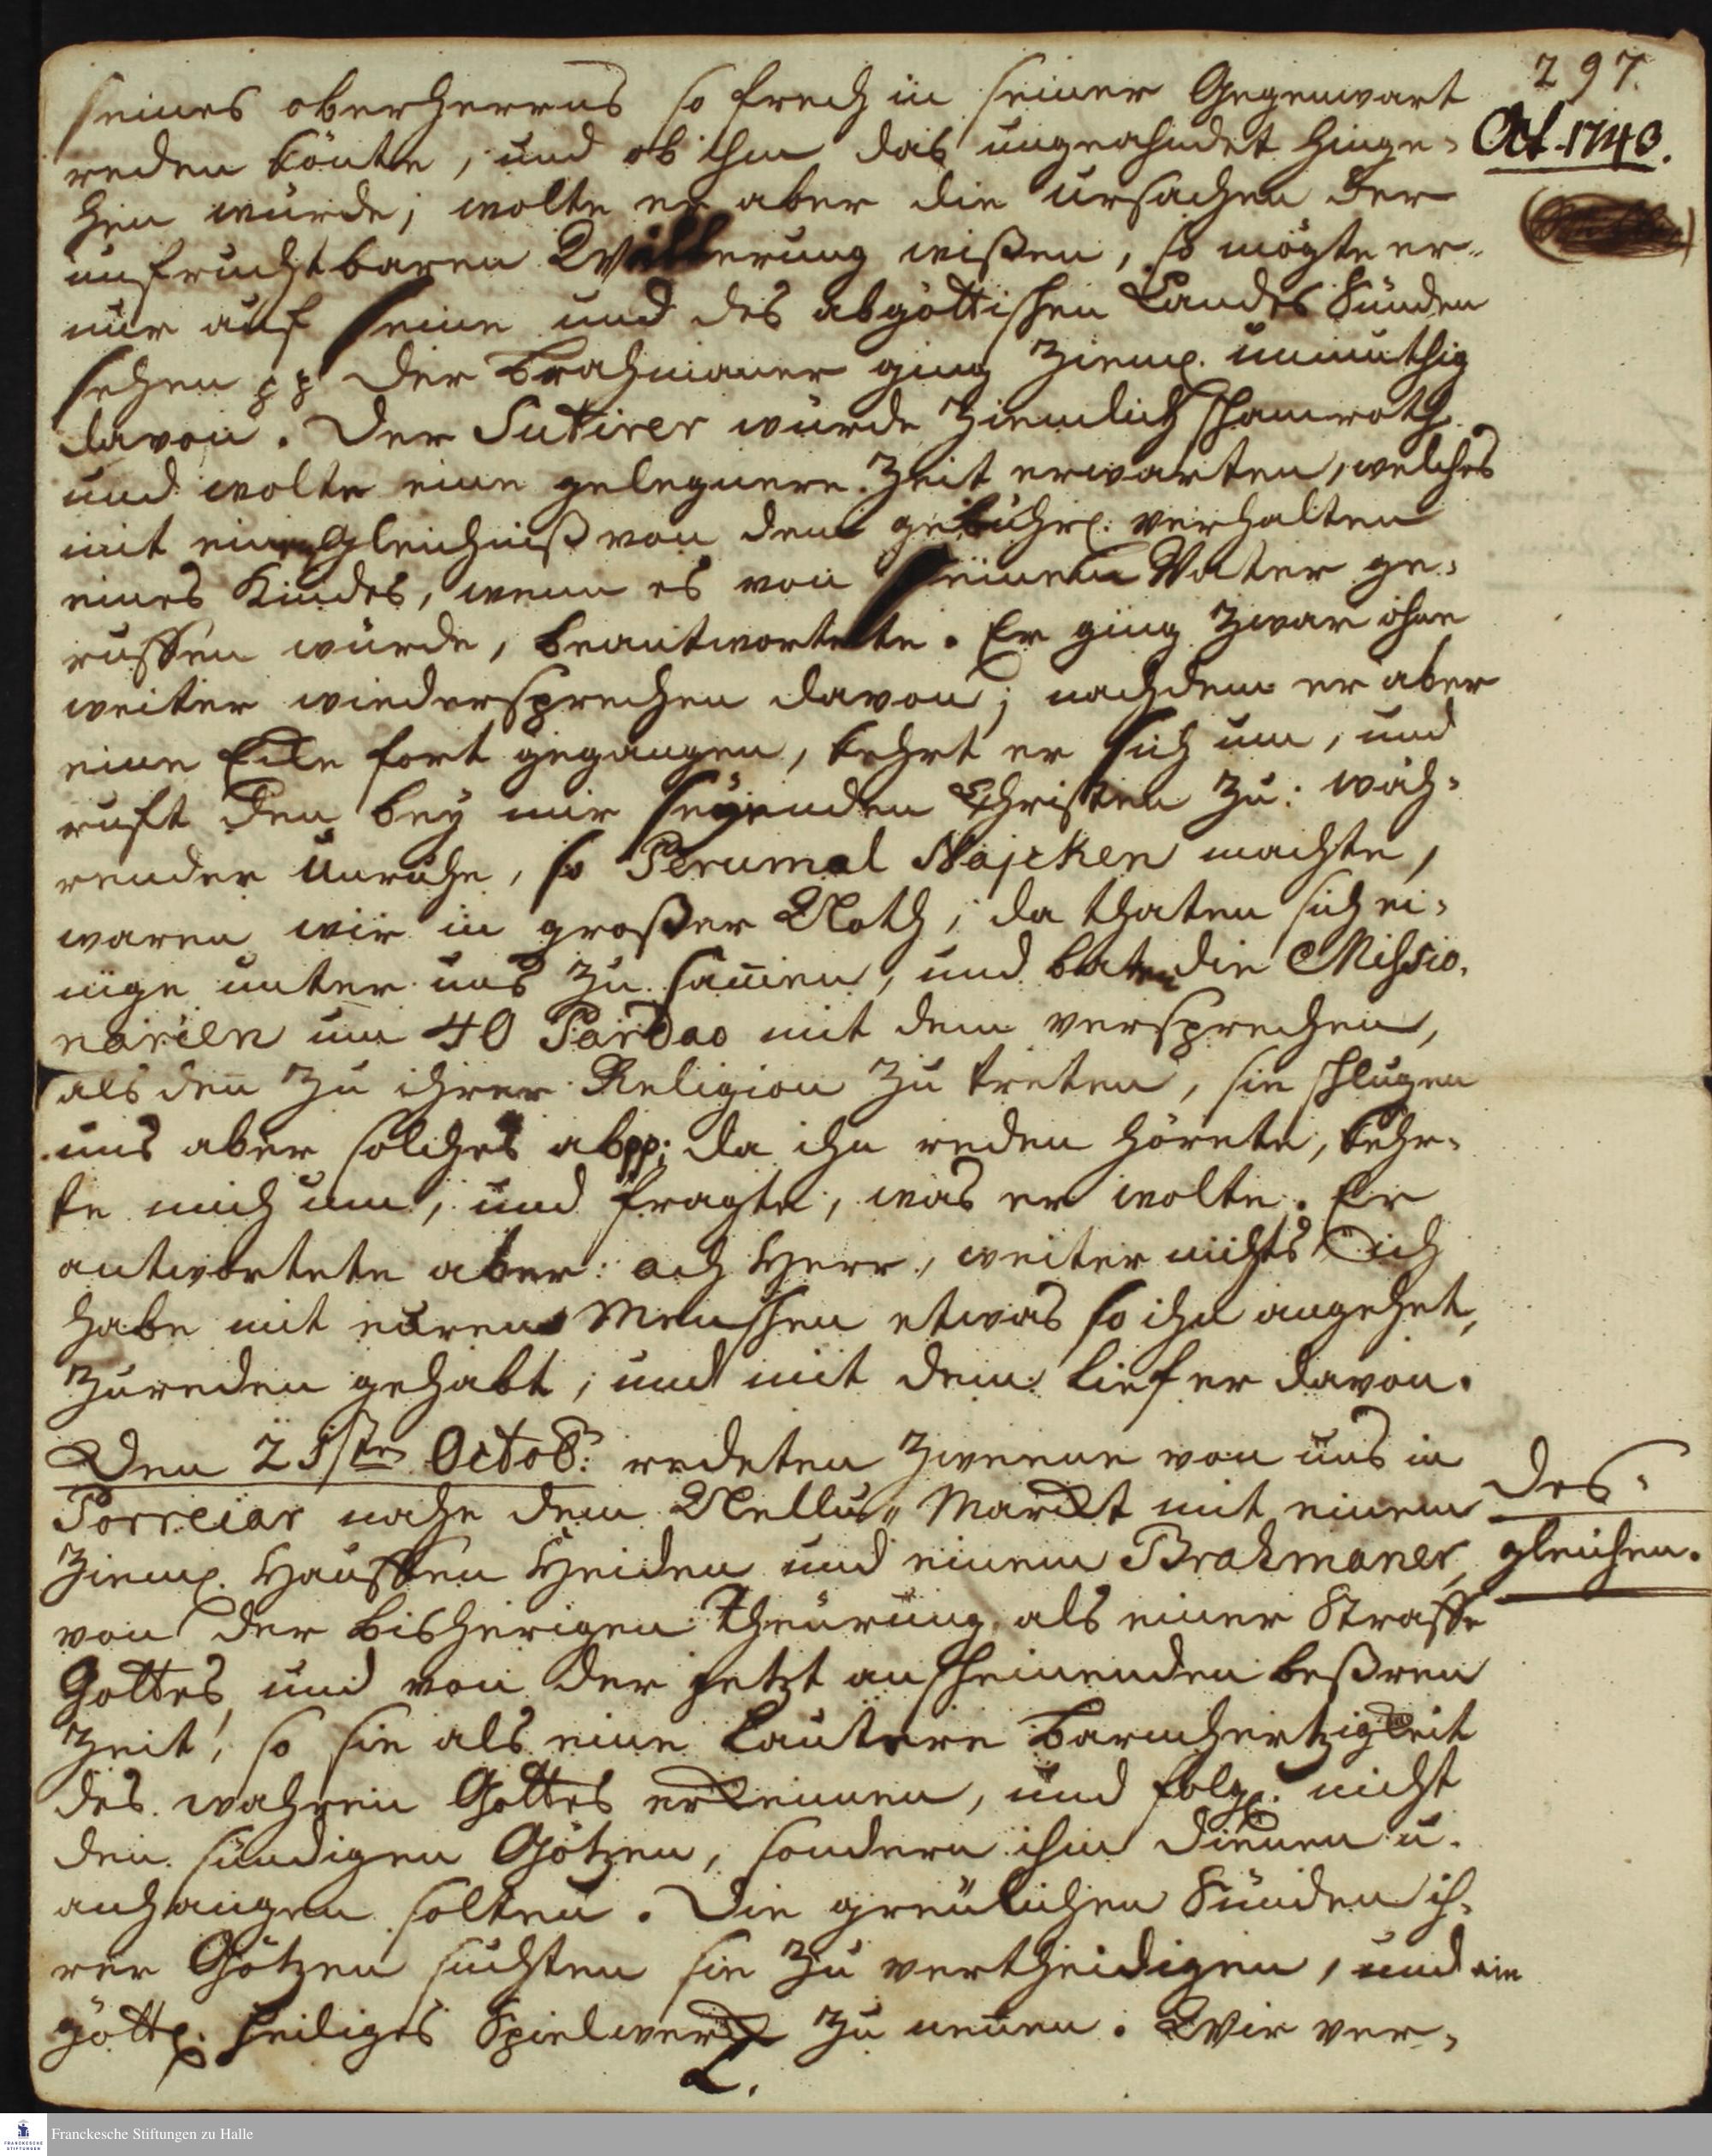 297.
Oct. 1743.
seines oberherrns so frech in seiner Gegenwart
reden könte, und ob ihm das ungeahndet hinge-
hen würde; wolte er aber die ursachen der
unfruchtbaren Witterung wißen, so mögte er
nur auf seine und des abgöttischen Landes Sünden
sehen pp Der Brahmaner ging ziemł. unmuthig
davon. Der Sutirer wurde ziemlich schamroth
und wolte eine gelegnere Zeit erwarten, welches
mit einem Gleichniß von dem gebührł: verhalten
eines Kindes, wenn es von seinem Vater ge-
ruffen würde, beantwortete. Er ging zwar ohne
weiter wiedersprechen davon; nachdem er aber
eine Eile fort gegangen, kehrt er sich um, und
ruft den bey mir seyenden Christen zu: wäh-
render Unruhe, so Perumal Najcken machte,
waren wir in großer Noth, da thaten sich ei-
nige unter uns zu samen, und baten die Missio-
narien um 40 Pardao mit dem versprechen,
als den zu ihrer Religion zu treten, sie schlugen
uns aber solches ab pp; da ihn reden hörete, kehr-
te mich um, und fragte, was er wolte. Er
antwortete aber: ach Herr, weiter nichts ich
habe mit euren Menschen etwas so ihn angehet,
zureden gehabt, und mit dem lief er davon.
Den 25sten Octob: redeten zweene von uns in
Porreiar nahe dem Nellu-Marckt mit einem
ziemł. Hauffen Heiden und einem Brahmaner,
von der bisherigen Theurung als einer Straffe
Gottes, und von der jetzt anscheinenden beßren
Zeit, so sie als eine Lautere Barmhertzigkeit
des wahren Gottes erkennen, und folgł. nicht
den sündigen Götzen, sondern ihm dienen u.
anhangen solten. Die greulichen Sünden ih-
rer Götzen suchten sie zu vertheidigen, und ein
göttł. heiliges Spielwerck zu nennen. Wir ver-
des-
gleichen.
Franckesche Stiftungen zu Halle
FRANCKESCHE
STIFTUNGEN